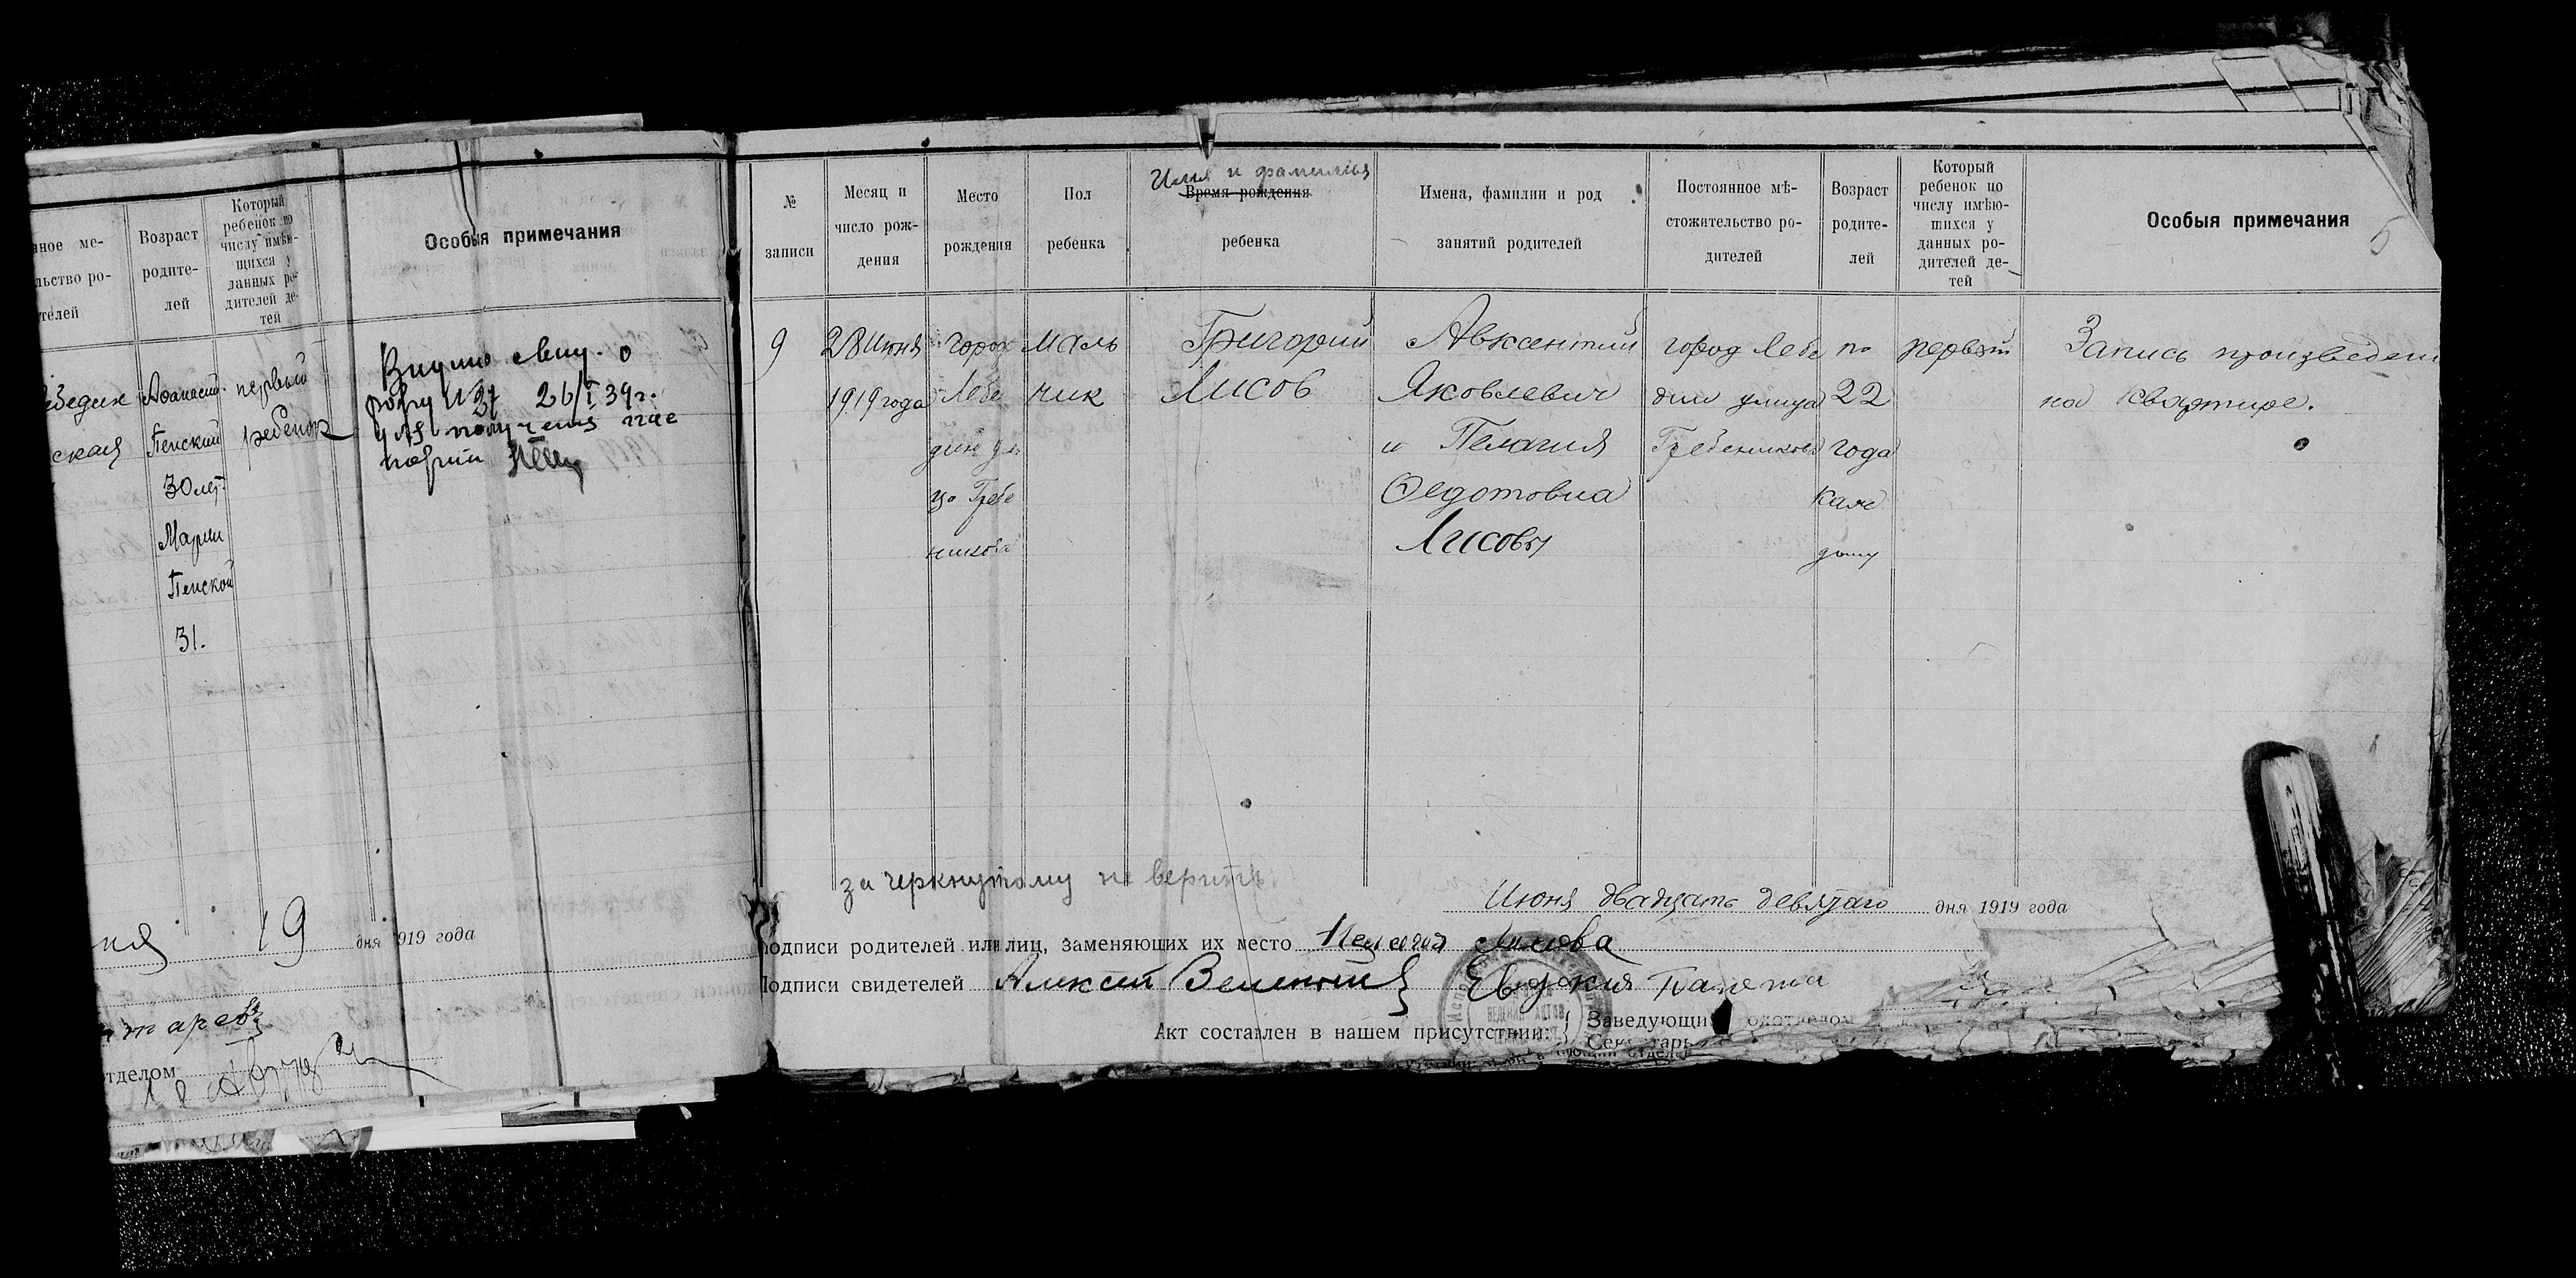 Возраст
родите-
лей
Который
ребенок по
числу имѣю-
щихся у
данных ро-
дителей де-
тей
Особыя примечания
Афанасий
Пенский
30 лет.
Марии
Пенской
31.
первый
ребенок
Выдано свид. о
26/I 39г.
19 дня 1919 года
№
записи
Месяц и
число рож-
дения
Место
рождения
Пол
ребенка
Имя и фамилия
Время рождения
ребенка
Имена, фамилии и род
занятий родителей
Постоянное мѣ-
стожительство ро-
дителей
Возраст
родите-
лей
Который
ребенок по
числу имѣю-
щихся у
данных ро-
дителей де-
тей
Особыя примечания
5
9
28 Июня
1919 года
город
Лебе
дин ули
ца Гребе
никова
маль
чик
Григорий
Лисов
Авксентий
Яковлевич
и Пелагия
Федотовна
Лисовы
город Лебе
дин улица
Гребеникова
по
22
года
каж
дому
первый
Запись произведена
на квартире.
зачеркнутому не верить
Июня двадцать девятаго дня 1919 года
Подписи родителей или лиц, заменяющих их место Пелагия Лисова
Подписи свидетелей Алексей Евдокия
Акт составлен в нашем присутствии: Заведующий подотделом
Секретарь